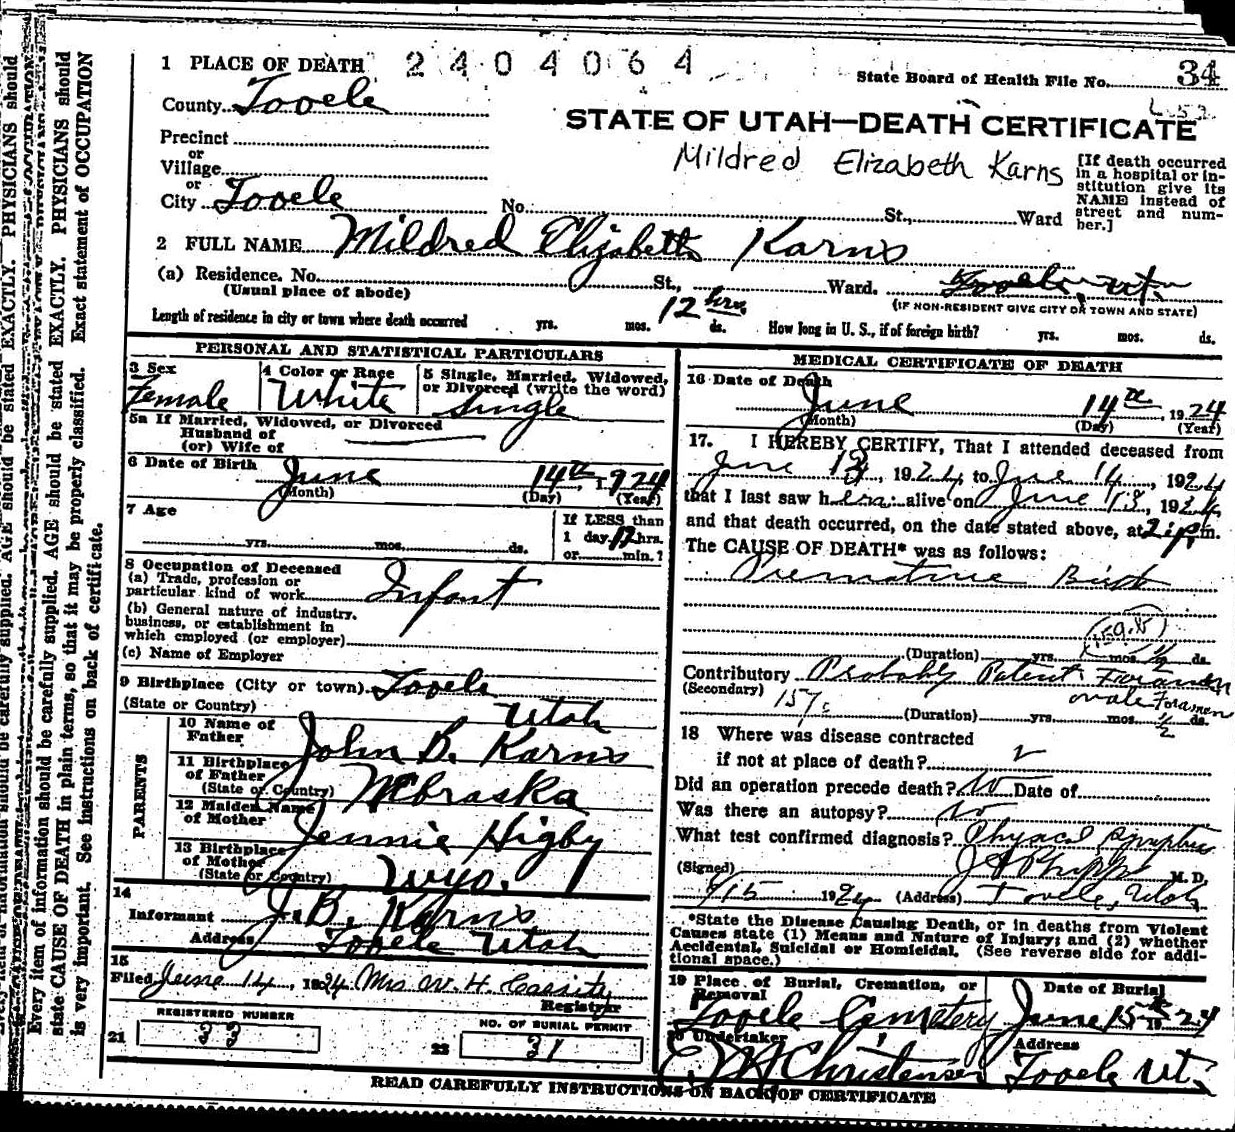 1 PLACE OF DEATH 2404064
State Board of Health File No. 34
County Tooele
STATE OF UTAH—DEATH CERTIFICATE
Precinct
Mildred Elizabeth Karns
or
Village
or
City Tooele No. St., Ward
[If death occurred
in a hospital or in-
stitution give its
NAME instead of
street and num-
ber.]
2 FULL NAME Mildred Elizabeth Karns
(a) Residence. No. St., Ward. Tooele, Ut.
(Usual place of abode) (IF NON-RESIDENT GIVE CITY OR TOWN AND STATE)
Length of residence in city or town where death occurred yrs. mos. 12 hrs. ds. How long in U. S., if of foreign birth? yrs. mos. ds.
PERSONAL AND STATISTICAL PARTICULARS
3 Sex
Female
4 Color or Race
White
5 Single, Married, Widowed,
or Divorced (write the word)
Single
5a If Married, Widowed, or Divorced
Husband of
(or) Wife of
6 Date of Birth June 14th 1924
(Month) (Day) (Year)
7 Age
yrs. mos. ds.
If LESS than
1 day 12 hrs.
or min.?
8 Occupation of Deceased
(a) Trade, profession or
particular kind of work Infant
(b) General nature of industry,
business, or establishment in
which employed (or employer)
(c) Name of Employer
9 Birthplace (City or town) Tooele
(State or Country) Utah
PARENTS
10 Name of
Father John B. Karns
11 Birthplace
of Father
(State or Country) Nebraska
12 Maiden Name
of Mother Jennie Higby
13 Birthplace
of Mother
(State or Country) Wyo.
14
Informant J. B. Karns
Address Tooele Utah
15
Filed June 14, 1924 Mrs W. H. Cassity
Registrar
REGISTERED NUMBER
21 33
NO. OF BURIAL PERMIT
22 31
MEDICAL CERTIFICATE OF DEATH
16 Date of Death
June 14th, 1924
(Month) (Day) (Year)
17. I HEREBY CERTIFY, That I attended deceased from
June 13, 1924, to June 14, 1924
that I last saw her alive on June 13, 1924
and that death occurred, on the date stated above, at 2 p.m.
The CAUSE OF DEATH* was as follows:
Premature Birth
(Duration) yrs. mos. 1/2 ds.
Contributory Probably Patent Foramen
(Secondary) ovale Foramen
(Duration) yrs. mos. 1/2 ds.
18 Where was disease contracted
if not at place of death?
Did an operation precede death? No Date of
Was there an autopsy? No
What test confirmed diagnosis? Physical Symptoms
(Signed) M. D.
6/15 1924 (Address) Tooele, Utah
*State the Disease Causing Death, or in deaths from Violent
Causes state (1) Means and Nature of Injury; and (2) whether
Accidental, Suicidal or Homicidal. (See reverse side for addi-
tional space.)
19 Place of Burial, Cremation, or
Removal
Tooele Cemetery
Date of Burial
June 15th 1924
20 Undertaker
Christensen
Address
Tooele Ut.
READ CAREFULLY INSTRUCTIONS ON BACK OF CERTIFICATE
Every item of information should be carefully supplied. AGE should be stated EXACTLY. PHYSICIANS should
state CAUSE OF DEATH in plain terms, so that it may be properly classified. Exact statement of OCCUPATION
is very important. See instructions on back of certificate.